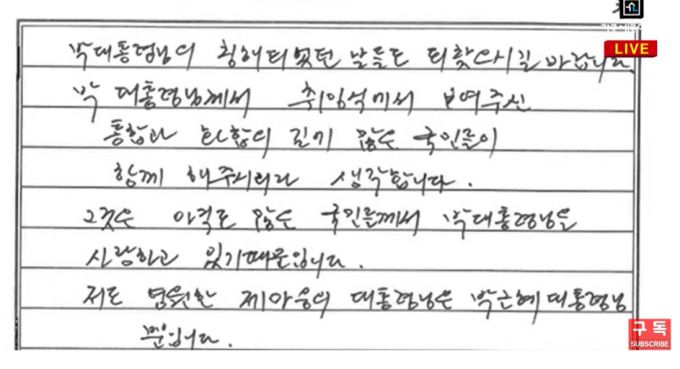 LIVE
박대통령님의 침해되었던 날들도 되찾으시길 바랍니다.
박 대통령님께서 취임식에서 보여주신
통합과 화합의 길키 많은 국민들이
함께 해주시리라 생각합니다.
그것은 아직도 많은 국민들께서 박대통령님을
사랑하고 있기때문입니다.
저도 영원한 제마음의 대통령님은 박근혜 대통령님
뿐입니다.
구독
SUBSCRIBE